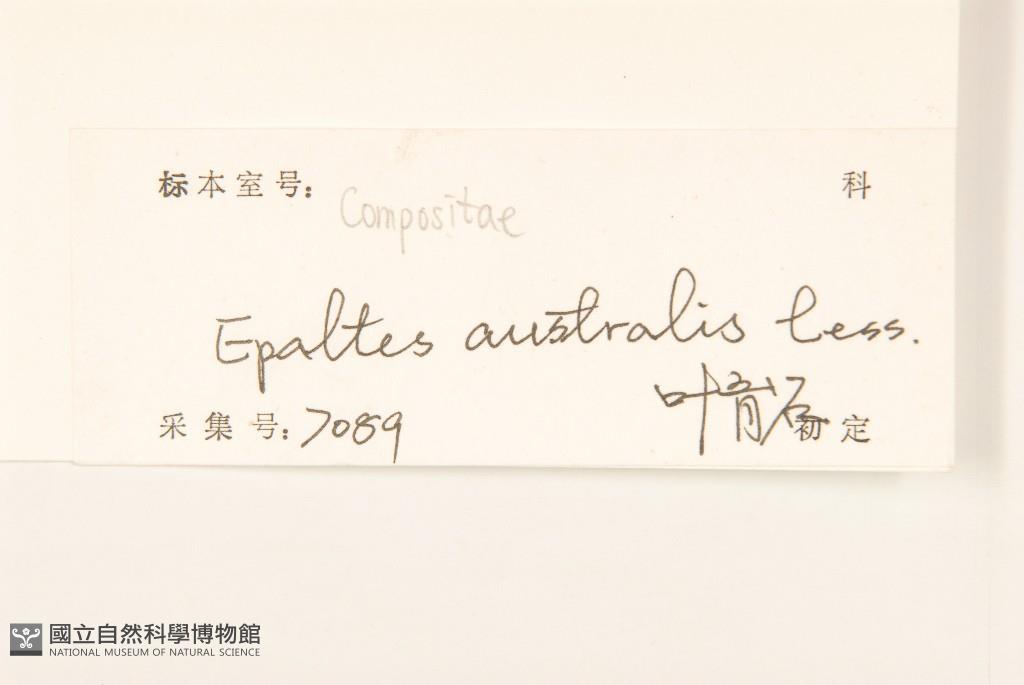 标本室号: 科
Compositae
Epaltes australis Less.
采集号: 7089 叶育石 初定
國立自然科學博物館
NATIONAL MUSEUM OF NATURAL SCIENCE